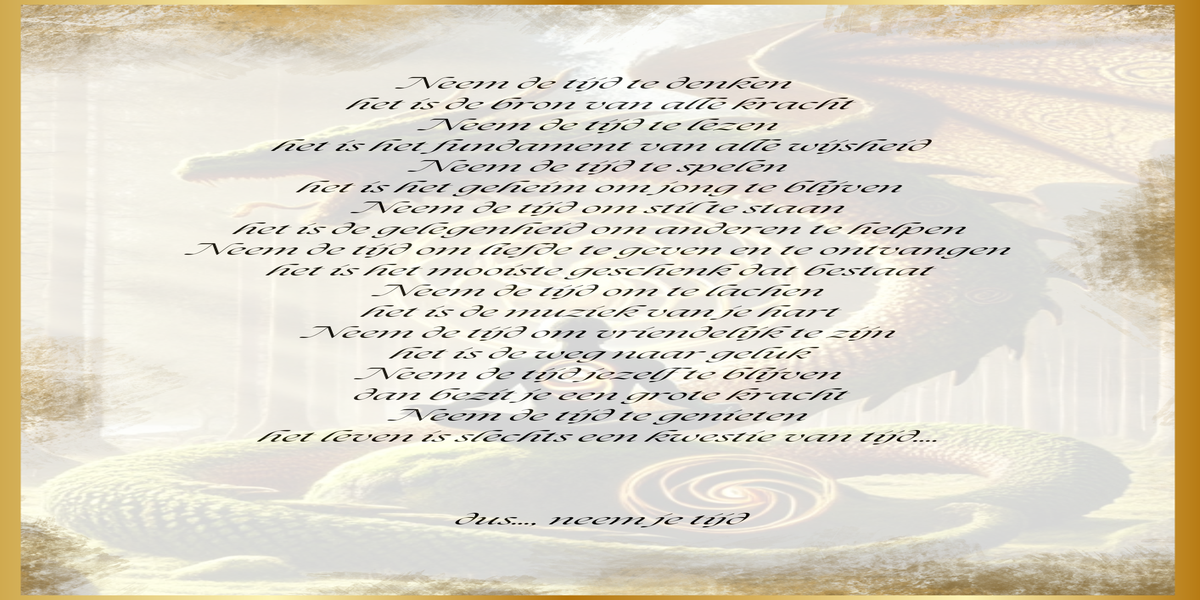 Neem de tijd te denken
het is de bron van alle kracht
Neem de tijd te lezen
het is het fundament van alle wijsheid
Neem de tijd te spelen
het is het geheim om jong te blijven
Neem de tijd om stil te staan
het is de gelegenheid om anderen te helpen
Neem de tijd om liefde te geven en te ontvangen
het is het mooiste geschenk dat bestaat
Neem de tijd om te lachen
het is de muziek van je hart
Neem de tijd om vriendelijk te zijn
het is de weg naar geluk
Neem de tijd jezelf te blijven
dan bezit je een grote kracht
Neem de tijd te genieten
het leven is slechts een kwestie van tijd....
dus.... neem je tijd